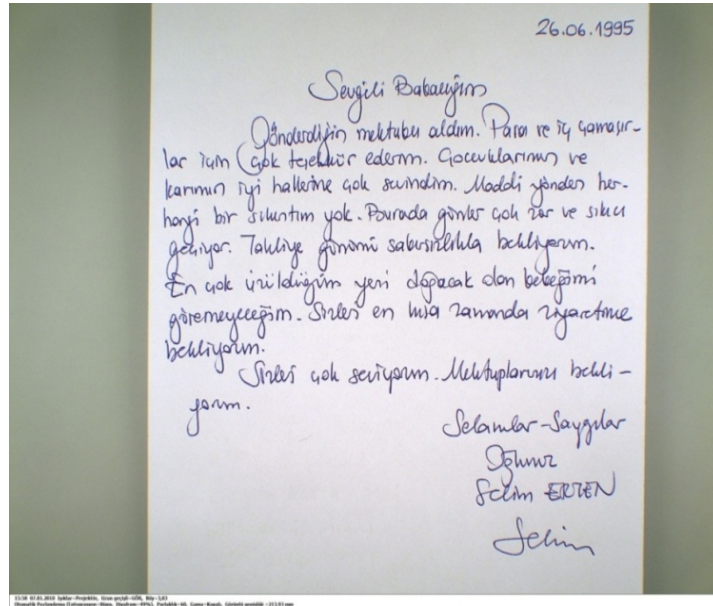 26.06.1995
Sevgili Babacığım
Gönderdiğin mektubu aldım. Para ve iç çamaşır-
lar için çok teşekkür ederim. Çocuklarımın ve
karımın iyi hallerine çok sevindim. Maddi yönden her-
hangi bir sıkıntım yok. Burada günler çok zor ve sıkıcı
geçiyor. Tahliye günümü sabırsızlıkla bekliyorum.
En çok üzüldüğüm yeni doğacak olan bebeğimi
göremeyeceğim. Sizleri en kısa zamanda ziyaretime
bekliyorum.
Sizleri çok seviyorum. Mektuplarınızı bekli-
yorum.
Selamlar-Saygılar
Oğlunuz
Selim ERTEN
Selim